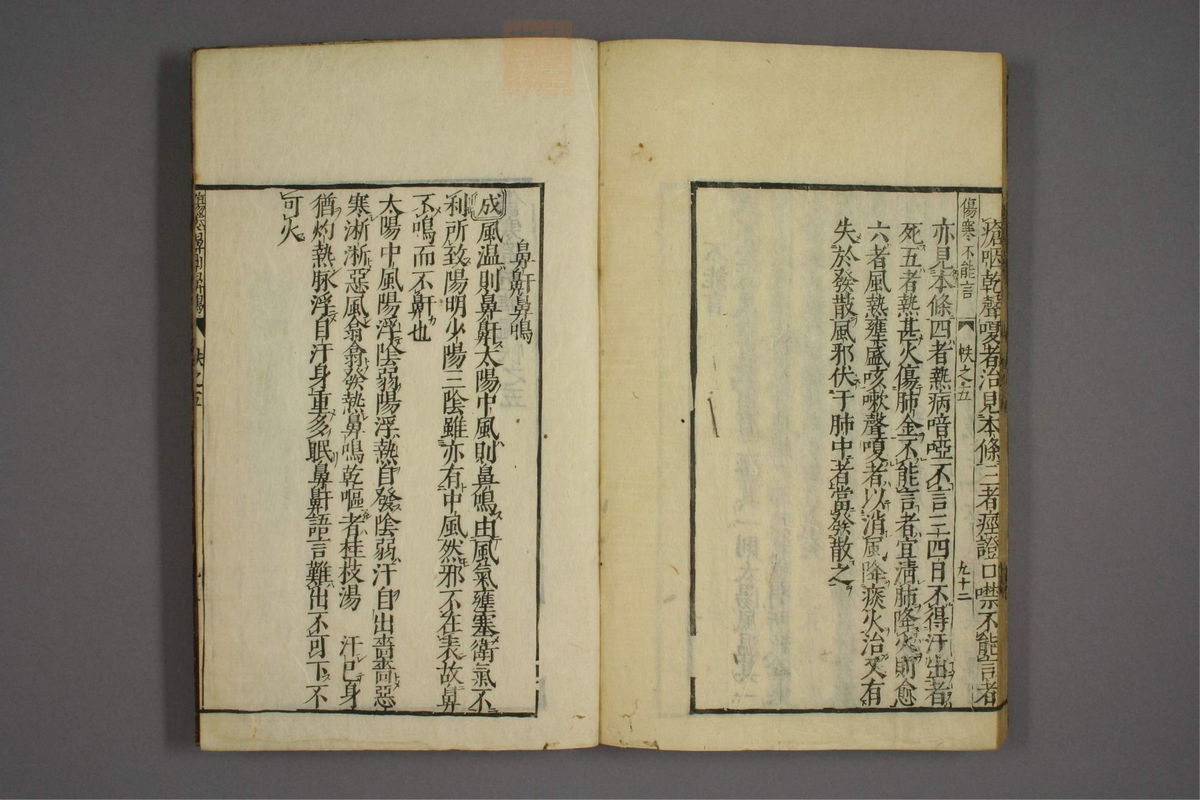 瘡咽乾聲嗄者治見本條三者痙證口噤不能言者
傷寒不能言 帙之五 九十二
亦見本條四者熱病喑啞不言三四日不得汗出者
死五者熱甚火傷肺金不能言者宜清肺降火則愈
六者風熱壅盛咳嗽聲嗄者以消風降痰火治又有
失於發散風邪伏于肺中者當發散之
鼻鼾鼻鳴
成風温則鼻鼾太陽中風則鼻鳴由風氣壅塞衛氣不
利所致陽明少陽三陰雖亦有中風然邪不在表故鼻
不鳴而不鼾也
太陽中風陽浮陰弱陽浮熱自發陰弱汗自出嗇嗇惡
寒淅淅惡風翕翕發熱鼻鳴乾嘔者桂枝湯 汗已身
猶灼熱脉浮自汗身重多眠鼻鼾語言難出不可下不
可火
帙之五